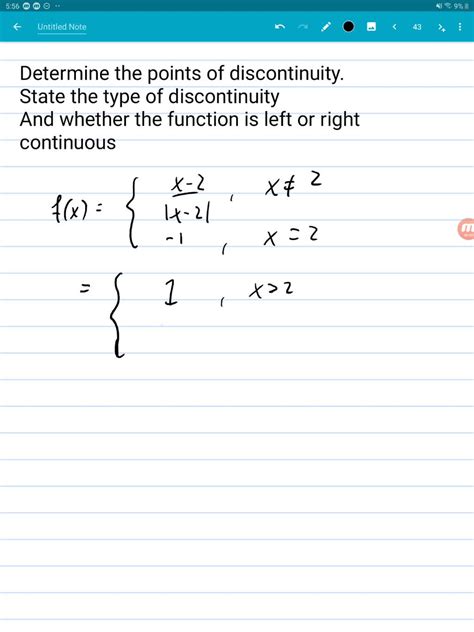 5:56 9%
Untitled Note 43
Determine the points of discontinuity.
State the type of discontinuity
And whether the function is left or right
continuous
f(x) = { x-2 / |x-2| , x ≠ 2
-1 , x = 2
= { 1 , x > 2